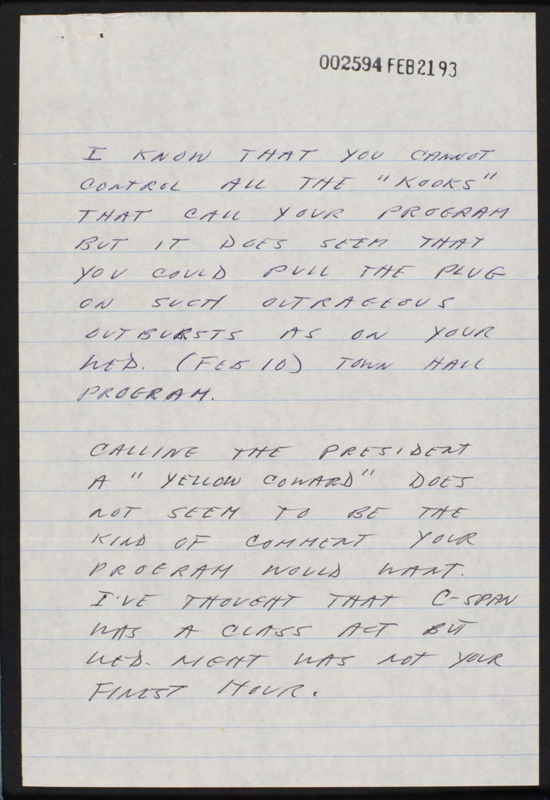 002594 FEB 21 93
I KNOW THAT YOU CANNOT
CONTROL ALL THE "KOOKS"
THAT CALL YOUR PROGRAM
BUT IT DOES SEEM THAT
YOU COULD PULL THE PLUG
ON SUCH OUTRAGEOUS
OUTBURSTS AS ON YOUR
WED. (FEB 10) TOWN HALL
PROGRAM.
CALLING THE PRESIDENT
A "YELLOW COWARD" DOES
NOT SEEM TO BE THE
KIND OF COMMENT YOUR
PROGRAM WOULD WANT.
I'VE THOUGHT THAT C-SPAN
WAS A CLASS ACT BUT
WED. NIGHT WAS NOT YOUR
FINEST HOUR.